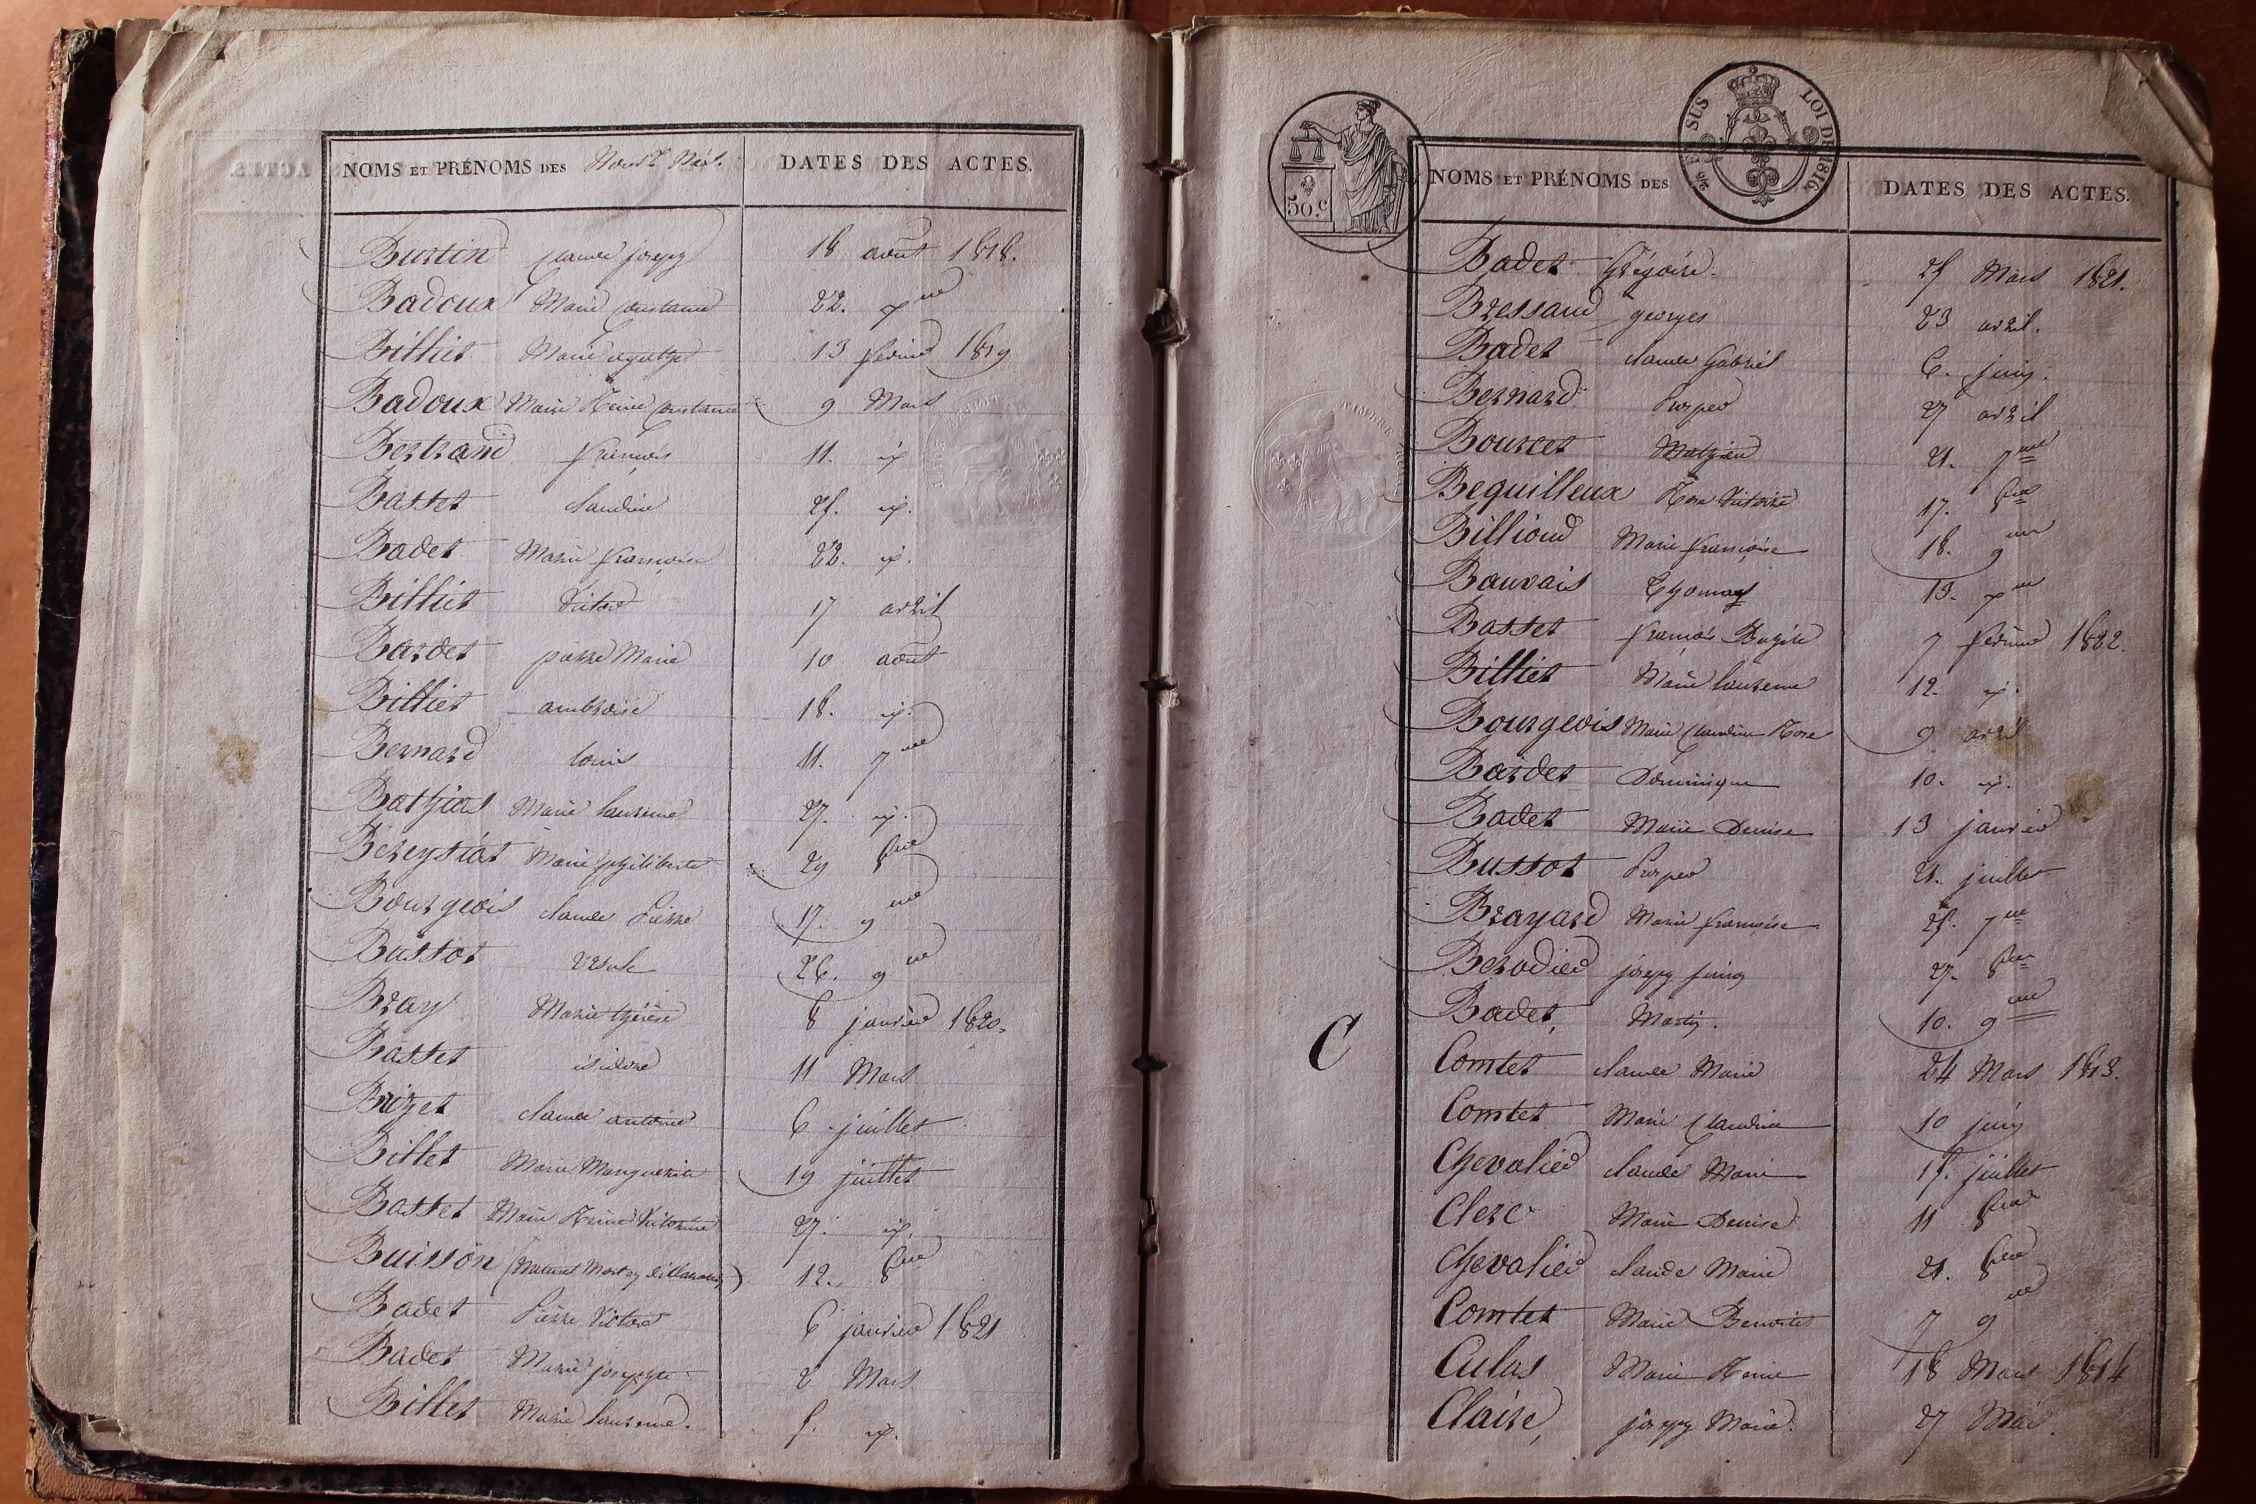 NOMS ET PRÉNOMS DES DATES DES ACTES.
Burtin Claude joseph 18 août 1818.
Badoux Marie Constance 22. xbre
Billiet Marie agathe 13 février 1819
Badoux Marie Reine Constance 9 Mars
Bertrand françois 11. id.
Basset claudine 25. id.
Badet Marie françoise 22. id.
Billiet Victor 17 avril
Bardet pierre Marie 10 août
Billiet ambroise 18. id.
Bernard louis 11. 7bre
Marie laurence 27. id.
Marie philiberte 29 8bre
Bourgeois claude Pierre 17. 9bre
Bussot Ursule 26. 9bre
Bray Marie thérèse 8 janvier 1820.
Basset isidore 11 Mars
Brizet claude antoine 6 juillet
Billet Marie Marguerite 19 juillet
Basset Marie Reine Victorine 27. id.
Buisson (Naturel 12. 8bre
Badet Pierre Victor 6 janvier 1821
Badet Marie josephte 2 Mars
Billet Marie laurence. 5. id.
50.c
SUS LOI DE 1816
NOMS ET PRÉNOMS DES DATES DES ACTES.
Badet Grégoire. 25 Mars 1821.
Bressand georges 23 avril.
Badet claude Gabriel 6. juin.
Bernard Prosper 27 avril
Bourcet Mathieu 21. 7bre
Bequilleux Rose Victoire 17. 8bre
Billioud Marie françoise 18. 9bre
Bauvais Thomas 13. xbre
Basset françois 7 février 1822.
Billiet Marie laurence 12. id.
Bourgeois Marie Claudine Rose 9 avril
Bardet Dominique 10. id.
Badet Marie Denise 13 janvier
Bussot Prosper 21. juillet
Brayard Marie françoise 25. 7bre
Berodier joseph 27. 8bre
Badet, Martin. 10. 9bre
C
Comtet claude Marie 24 Mars 1813.
Comtet Marie Claudine 10 juin
Chevalier claude Marie 15. juillet
Clerc Marie Denise 11 8bre
Chevalier claude Marie 21. 8bre
Comtet Marie Benoite 7 9bre
Culas Marie Reine 18 Mars 1814
Claire, joseph Marie. 27 Mai.